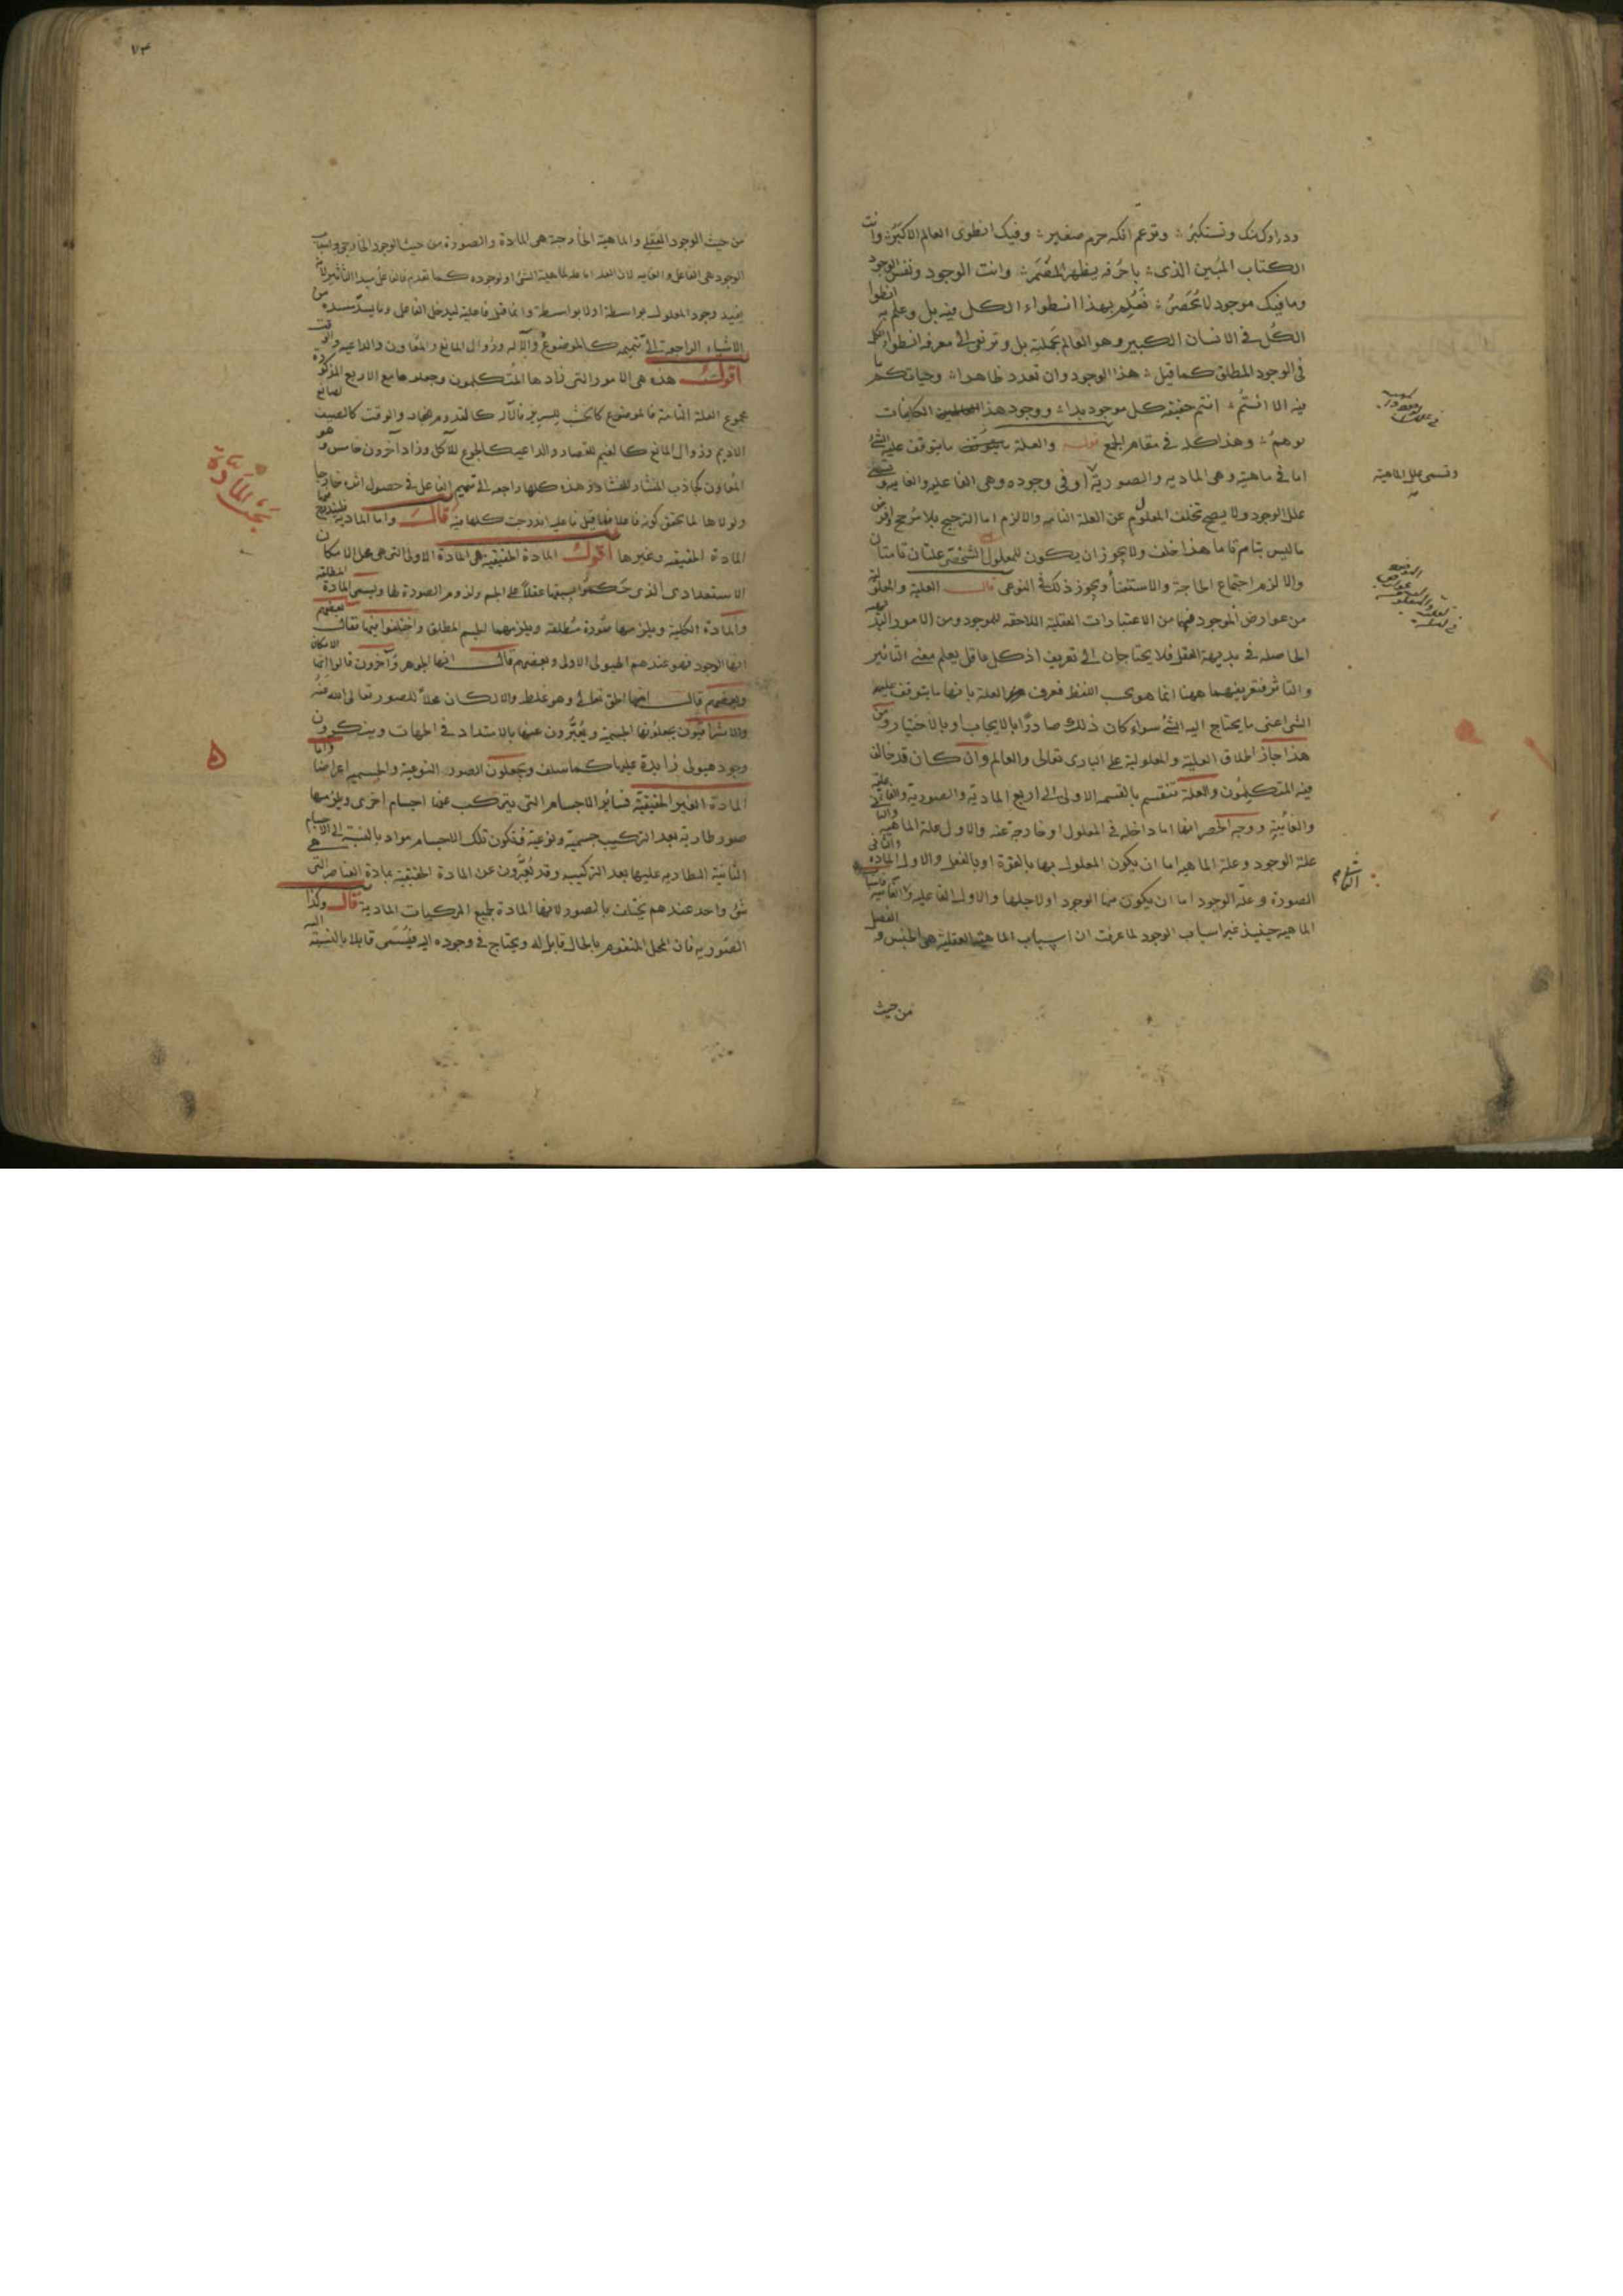 وداوك منك وتستكبر ؞ وتزعم انك جرم صغير ؞ وفيك انطوى العالم الاكبر ؞ وانت
الكتاب المبين الذى ؞ باحرفه يظهر المضمر ؞ وانت الوجود ونفس الوجود
وما فيك موجود لا يحصر ؞ فعلم بهذا انطواء الكل فيه بل وعلم به انطوا
الكل فى الانسان الكبير وهو العالم بجملته بل وترتقى الى معرفة انطواء الكل
فى الوجود المطلق كما قيل ؞ هذا الوجود وان تعدد ظاهرا ؞ وحياتكم ما
فيه الا انتم ؞ انتم حقيقة كل موجود بدا ؞ ووجود هذا الكاينات
توهم ؞ وهذا كله فى مقام الجمع قوله والعلة ما يتوقف عليه الشئ
اما فى ماهيته وهى المادية والصورية او فى وجوده وهى الفاعلية والغاية وتسمى
علل الوجود ولا يصح تخلف المعلول عن العلة التامة والا لزم اما الترجيح بلا مرجح او فرض
ما ليس بتام تاما هذا خلف ولا يجوز ان يكون للمعلول الشخصى علتان تامتان
والا لزم اجتماع الحاجة والاستغنا ويجوز ذلك فى النوعى قال العلية والمعلولية
من عوارض الموجود فهما من الاعتبارات العقلية اللاحقة للموجود ومن الامور البديهية
الحاصلة فى بديهة العقل فلا يحتاجان الى تعريف اذ كل عاقل يعلم معنى التاثير
والتاثر فتعريفهما ههنا انما هو بحسب اللفظ فعرف العلة بانها ما يتوقف عليه
الشى اعنى ما يحتاج اليه الشئ سواء كان ذلك صادرا بالايجاب او بالاختيار ومن
هذا جاز اطلاق العلية والمعلولية على البارى تعالى والعالم وان كان قد خالف
فيه المتكلمون والعلة تنقسم بالقسمة الاولى الى اربع المادية والصورية والفاعلية
والغائية ووجه الحصر انها اما داخلة فى المعلول او خارجة عنه والاول علة الماهية والثانى
علة الوجود وعلة الماهية اما ان يكون المعلول بها بالقوة او بالفعل والاول المادة والثانى
الصورة وعلة الوجود اما ان يكون منها الوجود او لاجلها والاول الفاعلية والثانى الغائية
الماهية حينيذ غير اسباب الوجود لما عرفت ان اسباب الماهية العقلية هى الجنس والفصل
من حيث
وتسمى علل الماهية
٧٣
من حيث الوجود العقلى والماهية الخارجة هى المادة والصورة من حيث الوجود الخارجى واسباب
الوجود هى الفاعل والغاية لان العلة اما علة لماهية الشئ او لوجوده كما تقدم فالفاعل مبدا التاثير لانه
يفيد وجود المعلول بواسطة او لا بواسطة وانما قيل فاعلية ليدخل الفاعل وما يسد مسده من
الاشياء الراجعة الى تتميمه كالموضوع والآلة وزوال المانع والمعاون والداعية والوقت
اقول هذه هى الامور التى زادها المتكلمون وجعلوها مع الاربع المذكورة
مجموع العلة التامة فالموضوع كالخشب للسرير والآلة كالقدوم للنجار والوقت كالصيف لصانع
الاديم وزوال المانع كالغيم للقصار والداعية كالجوع للآكل وزاد آخرون خامس وهو
المعاون كجاذب المنشار للنشار وهذه كلها راجعة الى تتميم الفاعل فى حصول اثره خارجا
ولولاها لما تحقق كونه فاعلا فلما قيل فاعلية اندرجت كلها فيه قال واما المادية فيندرج فيها
المادة الحقيقية وغيرها اقول المادة الحقيقية هى المادة الاولى التى هى محل الامكان
الاستعدادى الذى حكموا بسبقها عقلا على الجسم ولزوم الصورة لها ويسمى المادة المطلقة
والمادة الكلية ويلزمها صورة مطلقة ويلزمهما الجسم المطلق واختلفوا فيها فقال بعضهم
انها الوجود فهو عندهم الهيولى الاولى وبعضهم قال انها الجوهر وآخرون قالوا انها الامكان
وبعضهم قال انها الحق تعالى وهو غلط والا لكان محلا للصور تعالى الله عنه
والاشراقيون يجعلونها الجسمية ويعبرون عنها بالامتداد فى الجهات وينكرون
وجود هيولى زايدة عليها كما سلف ويجعلون الصور النوعية والجسمية اعراضا واما
المادة الغير الحقيقية فسائر الاجسام التى يتركب عنها اجسام اخرى ويلزمها
صور طارية بعد التركيب جسمية ونوعية فتكون تلك الاجسام مواد بالنسبة الى الاجسام
الثانية الطارية عليها بعد التركيب وقد يعبرون عن المادة الحقيقية بمادة العناصر التى هى
شئ واحد عندهم يختلف بالصور لانها المادة لجميع المركبات المادية قال وكذا
الصورية فان المحل المتقوم بالحال قابل له ويحتاج فى وجوده اليه فيسمى قابلا بالنسبة اليه
بحث المادة